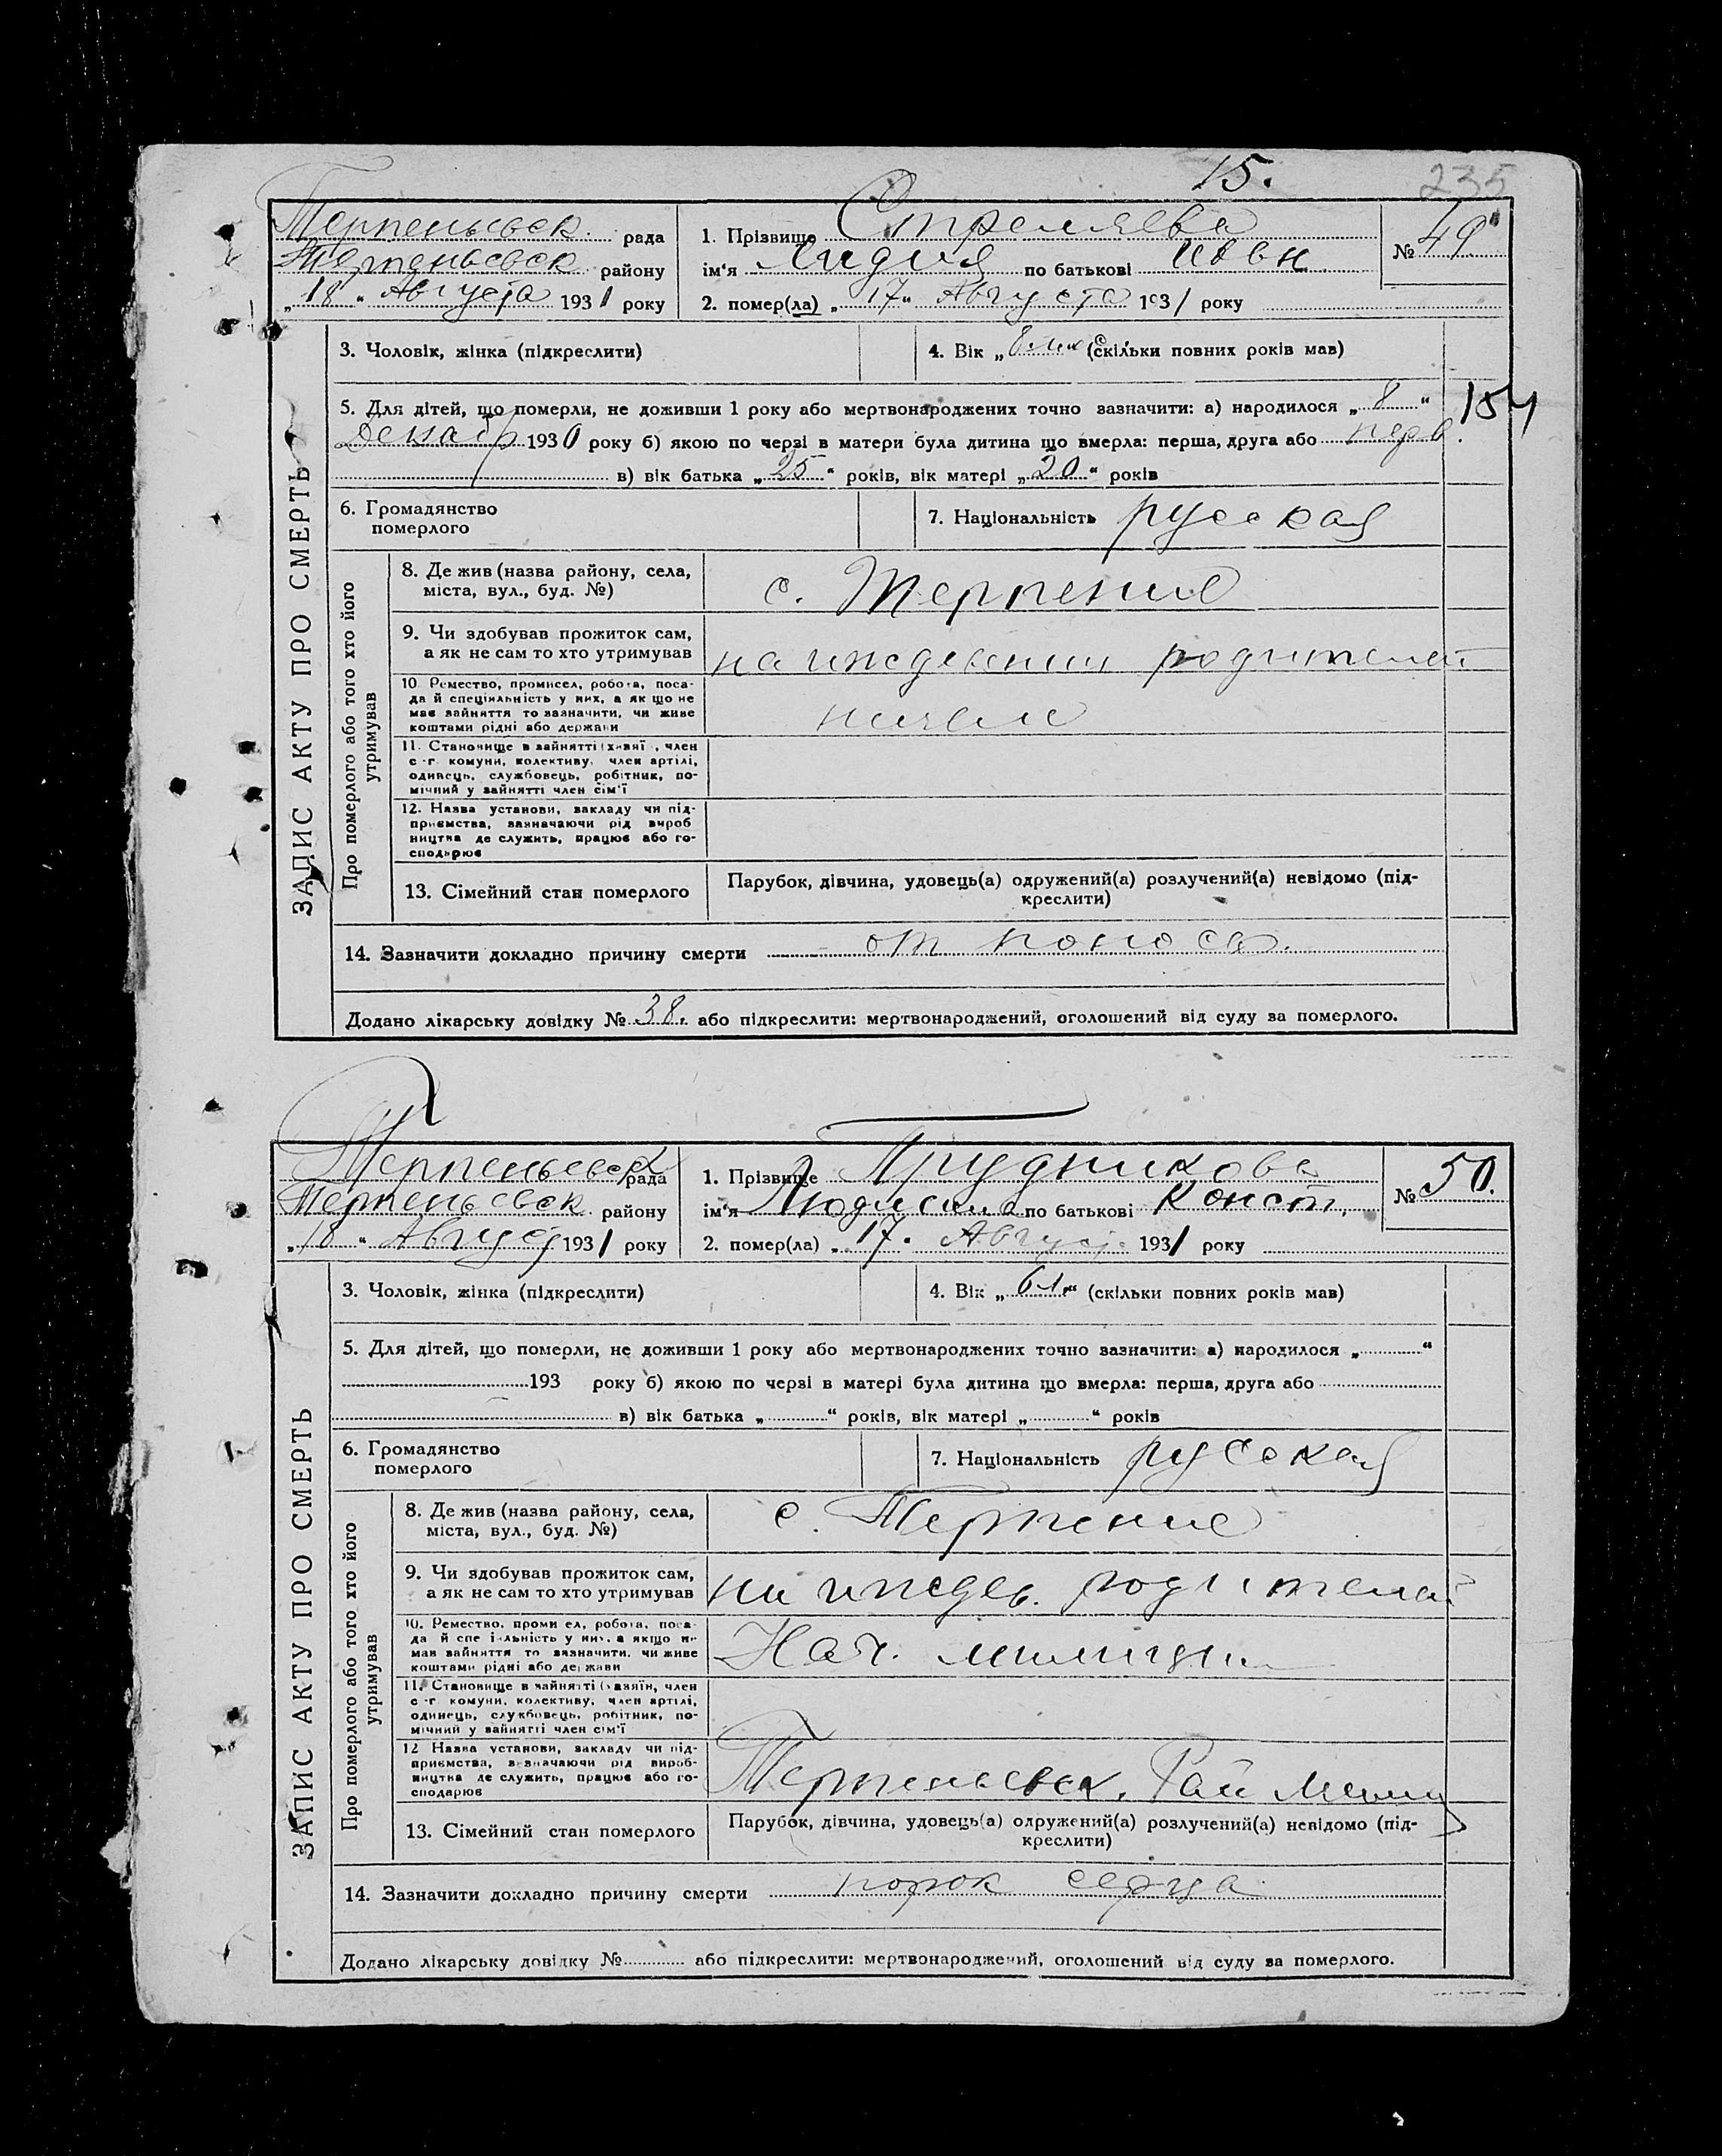 15.
235
Терпеньевск. рада
Терпеньевск районy
„18“ Августа 1931 року
1. Прізвище Стреляева
ім‘я Лидия по батькові Иввн
№ 49
2. помер(ла) „17“ Августа 1931 року
ЗАПИС АКТУ ПРО СМЕРТЬ
3. Чоловік, жінка (підкреслити)
4. Вік „8 м“ (скільки повних років мав)
5. Для дітей, що померли, не доживши 1 року або мертвонароджених точно зазначити: а) народилося „8“
Декабр 1930 року б) якою по черзі в матери була дитина що вмерла: перша, друга або перв.
в) вік батька „25“ років, вік матері „20“ років
154
6. Громадянство
померлого
7. Національність русская
Про померлого або того хто його
утримував
8. Де жив (назва району, села,
міста, вул., буд. №)
с. Терпение
9. Чи здобував прожиток сам,
а як не сам то хто утримував
на иждевении родителей
10. Ремество, промисел, робота, поса-
да й спеціяльність у них, а як що не
має зайняття то зазначити, чи живе
коштами рідні або держави
11. Становище в зайнятті (хазяї , член
с.-г. комуни, колективу, член артілі,
одинець, службовець, робітник, по-
мічний у зайнятті член сім‘ї
12. Назва установи, закладу чи під-
приємства, зазначаючи рід вироб
ництва де служить, працює або го-
сподарює
13. Сімейний стан померлого
Парубок, дівчина, удовець(а) одружений(а) розлучений(а) невідомо (під-
креслити)
14. Зазначити докладно причину смерти от поноса.
Додано лікарську довідку № 38. або підкреслити: мертвонароджений, оголошений від суду за померлого.
Терпеньевск рада
Терпеньевск районy
„18“ Август 1931 року
1. Прізвище Прудникова
ім‘я Людмила по батькові Конст.
№ 50.
2. помер(ла) „17. Август. 1931 року
ЗАПИС АКТУ ПРО СМЕРТЬ
3. Чоловік, жінка (підкреслити)
4. Вік „6 л.“ (скільки повних років мав)
5. Для дітей, що померли, не доживши 1 року або мертвонароджених точно зазначити: а) народилося „ “
193 року б) якою по черзі в матері була дитина що вмерла: перша, друга або
в) вік батька „ “ років, вік матері „ “ років
6. Громадянство
померлого
7. Національність русская
Про померлого або того хто його
утримував
8. Де жив (назва району, села,
міста, вул., буд. №)
с. Терпение
9. Чи здобував прожиток сам,
а як не сам то хто утримував
на иждев. родителей
10. Ремество, проми ел, робота, поса-
да й спе і льність у них, а якщо не
має зайняття то зазначити, чи живе
коштами рідні або держави
Нач. милиции
11. Становище в зайнятті (хазяїн, член
с.-г. комуни, колективу, член артілі,
одинець, службовець, робітник, по-
мічний у зайнятті член сім‘ї
12 Назва установи, закладу чи під-
приємства, зазначаючи рід вироб-
ництва де служить, працює або го-
сподарює
Терпеньевск. Рай Милиц
13. Сімейний стан померлого
Парубок, дівчина, удовець(а) одружений(а) розлучений(а) невідомо (під-
креслити)
14. Зазначити докладно причину смерти порок серца
Додано лікарську довідку № або підкреслити: мертвонароджений, оголошений від суду за померлого.